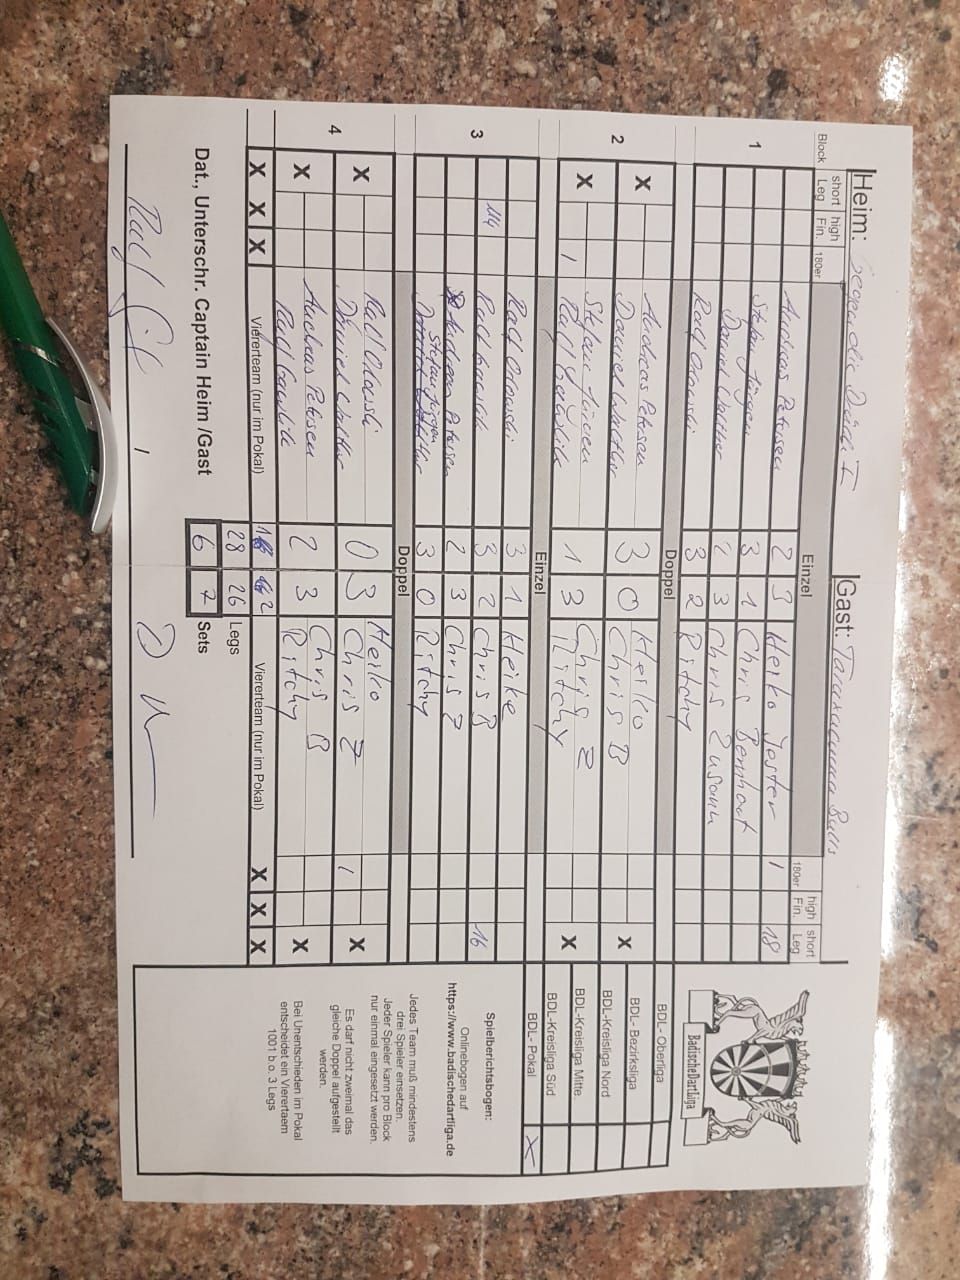 Heim: Gegen die Dardi I Gast: Taramanna Bulls
Block short Leg high Fin. 180er Einzel 180er high Fin. short Leg
1 Andreas Petersen 2 3 Heiko Joster 1 18
Stefan Jürgen 3 1 Chris Bernhart
Daniel Walter 2 3 Chris Zusann
Ralf Orlowski 3 2 Ritchy
Doppel
2 X Andreas Petersen 3 0 Heiko X
Daniel Walter Chris B
X 1 Stefan Jürgen 1 3 Chris Z X
Ralf Gawlik Ritchy
Einzel
3 Ralf Orlowski 3 1 Heike
114 Ralf Gawlik 3 2 Chris B 16
Andreas Petersen 2 3 Chris Z
Stefan Jürgen 3 0 Ritchy
Doppel
4 X Ralf Orlowski 0 3 Heiko X
Daniel Walter Chris Z 1
X Andreas Petersen 2 3 Chris B X
Ralf Gawlik Ritchy
X X X Viererteam (nur im Pokal) 1 2 Viererteam (nur im Pokal) X X X
28 26 Legs
6 7 Sets
Dat., Unterschr. Captain Heim /Gast
BadischeDartLiga
BDL- Oberliga
BDL- Bezirksliga
BDL-Kreisliga Nord
BDL-Kreisliga Mitte
BDL-Kreisliga Süd
BDL- Pokal X
Spielberichtsbogen:
Onlinebogen auf
https://www.badischedartliga.de
Jedes Team muß mindestens
drei Spieler einsetzen.
Jeder Spieler kann pro Block
nur einmal eingesetzt werden.
Es darf nicht zweimal das
gleiche Doppel aufgestellt
werden.
Bei Unentschieden im Pokal
entscheidet ein Vierertaem
1001 b o. 3 Legs